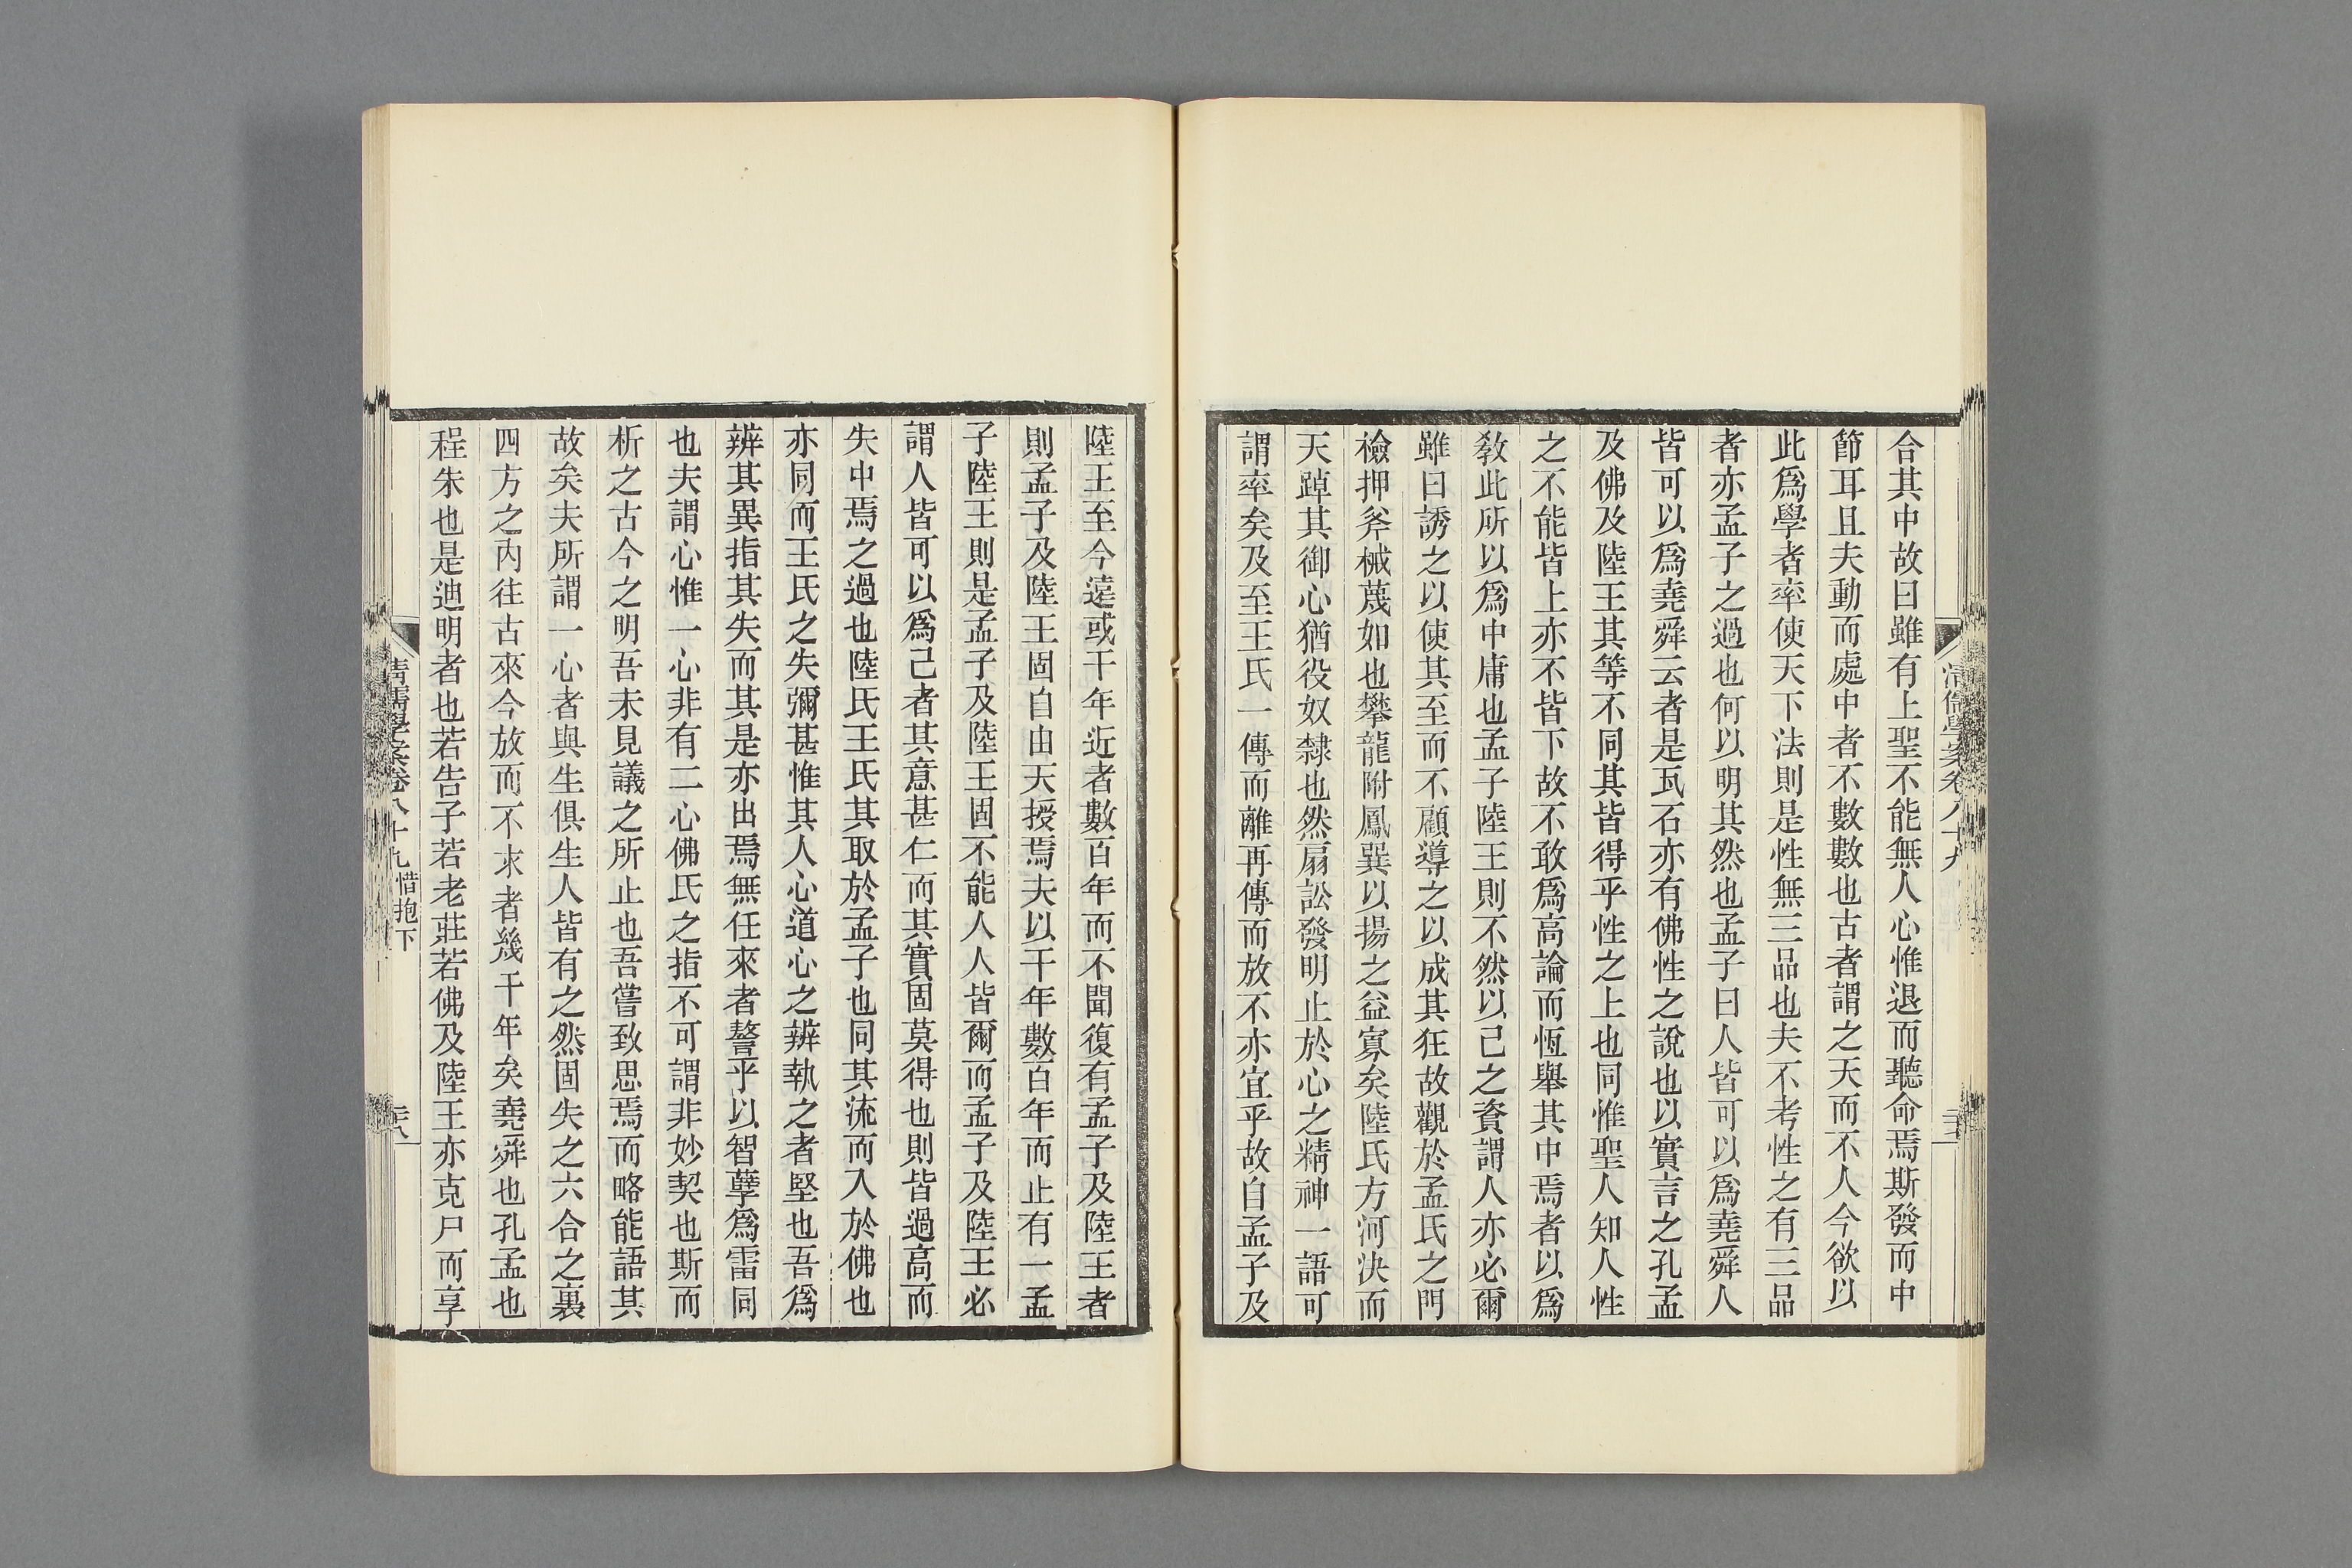 合其中故曰雖有上聖不能無人心惟退而聽命焉斯發而中
節耳且夫動而處中者不數數也古者謂之天而不人今欲以
此爲學者率使天下法則是性無三品也夫不考性之有三品
者亦孟子之過也何以明其然也孟子曰人皆可以爲堯舜人
皆可以爲堯舜云者是瓦石亦有佛性之說也以實言之孔孟
及佛及陸王其等不同其皆得乎性之上也同惟聖人知人性
之不能皆上亦不皆下故不敢爲高論而恆舉其中焉者以爲
敎此所以爲中庸也孟子陸王則不然以己之資謂人亦必爾
雖曰誘之以使其至而不顧導之以成其狂故觀於孟氏之門
檢押斧械蔑如也攀龍附鳳巽以揚之益寡矣陸氏方河決而
天踔其御心猶役奴隸也然扇訟發明止於心之精神一語可
謂率矣及至王氏一傳而離再傳而放不亦宜乎故自孟子及
陸王至今遠或千年近者數百年而不聞復有孟子及陸王者
則孟子及陸王固自由天授焉夫以千年數百年而止有一孟
子陸王則是孟子及陸王固不能人人皆爾而孟子及陸王必
謂人皆可以爲己者其意甚仁而其實固莫得也則皆過高而
失中焉之過也陸氏王氏其取於孟子也同其流而入於佛也
亦同而王氏之失彌甚惟其人心道心之辨執之者堅也吾爲
辨其異指其失而其是亦出焉無任來者謷乎以智孽爲雷同
也夫謂心惟一心非有二心佛氏之指不可謂非妙契也斯而
析之古今之明吾未見議之所止也吾嘗致思焉而略能語其
故矣夫所謂一心者與生俱生人皆有之然固失之六合之裏
四方之內往古來今放而不求者幾千年矣堯舜也孔孟也
程朱也是迪明者也若告子若老莊若佛及陸王亦克尸而享
清儒學案卷八十九惜抱下